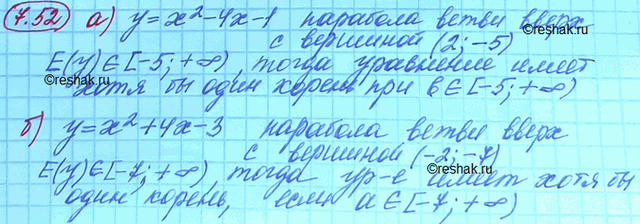 7.52 а) y=x²-4x-1 парабола ветви вверх
с вершиной (2; -5)
E(y)∈[-5; +∞), тогда уравнение имеет
хотя бы один корень при b∈[-5; +∞)
©reshak.ru
©reshak.ru
б) y=x²+4x-3 парабола ветви вверх
с вершиной (-2; -7)
E(y)∈[-7; +∞), тогда ур-е имеет хотя бы
один корень, если a∈[-7; +∞)
©reshak.ru
©reshak.ru